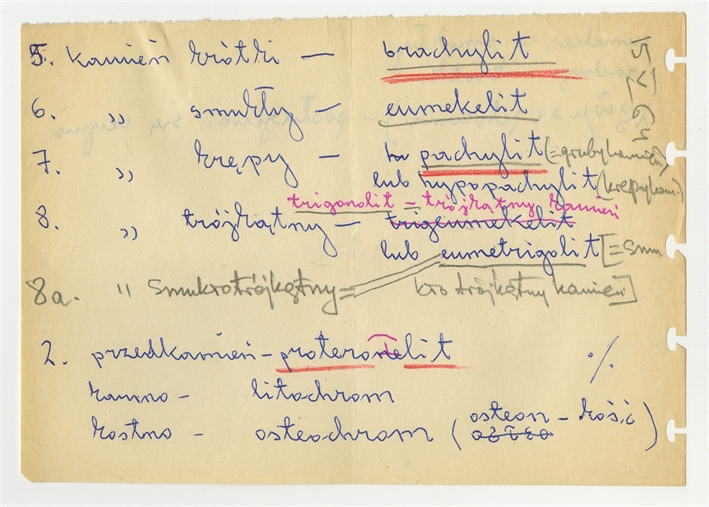 5. kamień krótki — brachylit
6. „ smukły — eumekelit
7. „ krępy — pachylit (= gruby kamień)
lub hypopachylit (krępy kami
trigonolit = trójkątny kamień
8. „ trójkątny — trigeumekelit
lub eumetrigolit [= smu
8a. „ smukrotrójkątny = kro trójkątny kamień]
2. przedkamień - proterolit ·/.
kamno - litochrom
kostno - osteochrom (osteon - kość)